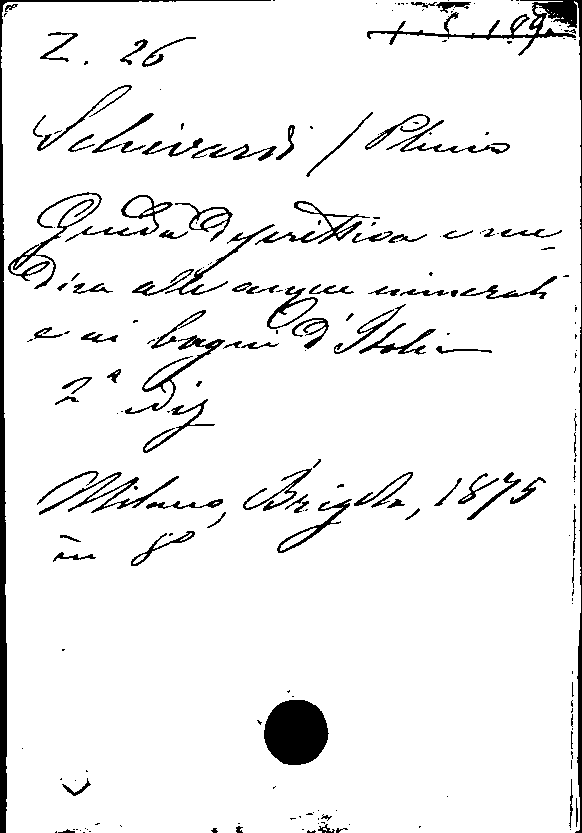 Z. 26
1.5.189
Schivardi / Plinio
Guida descrittiva e me-
dica alle acque minerali
e ai bagni d'Italia
2ª ediz
Milano, Brigola, 1875
in 8º